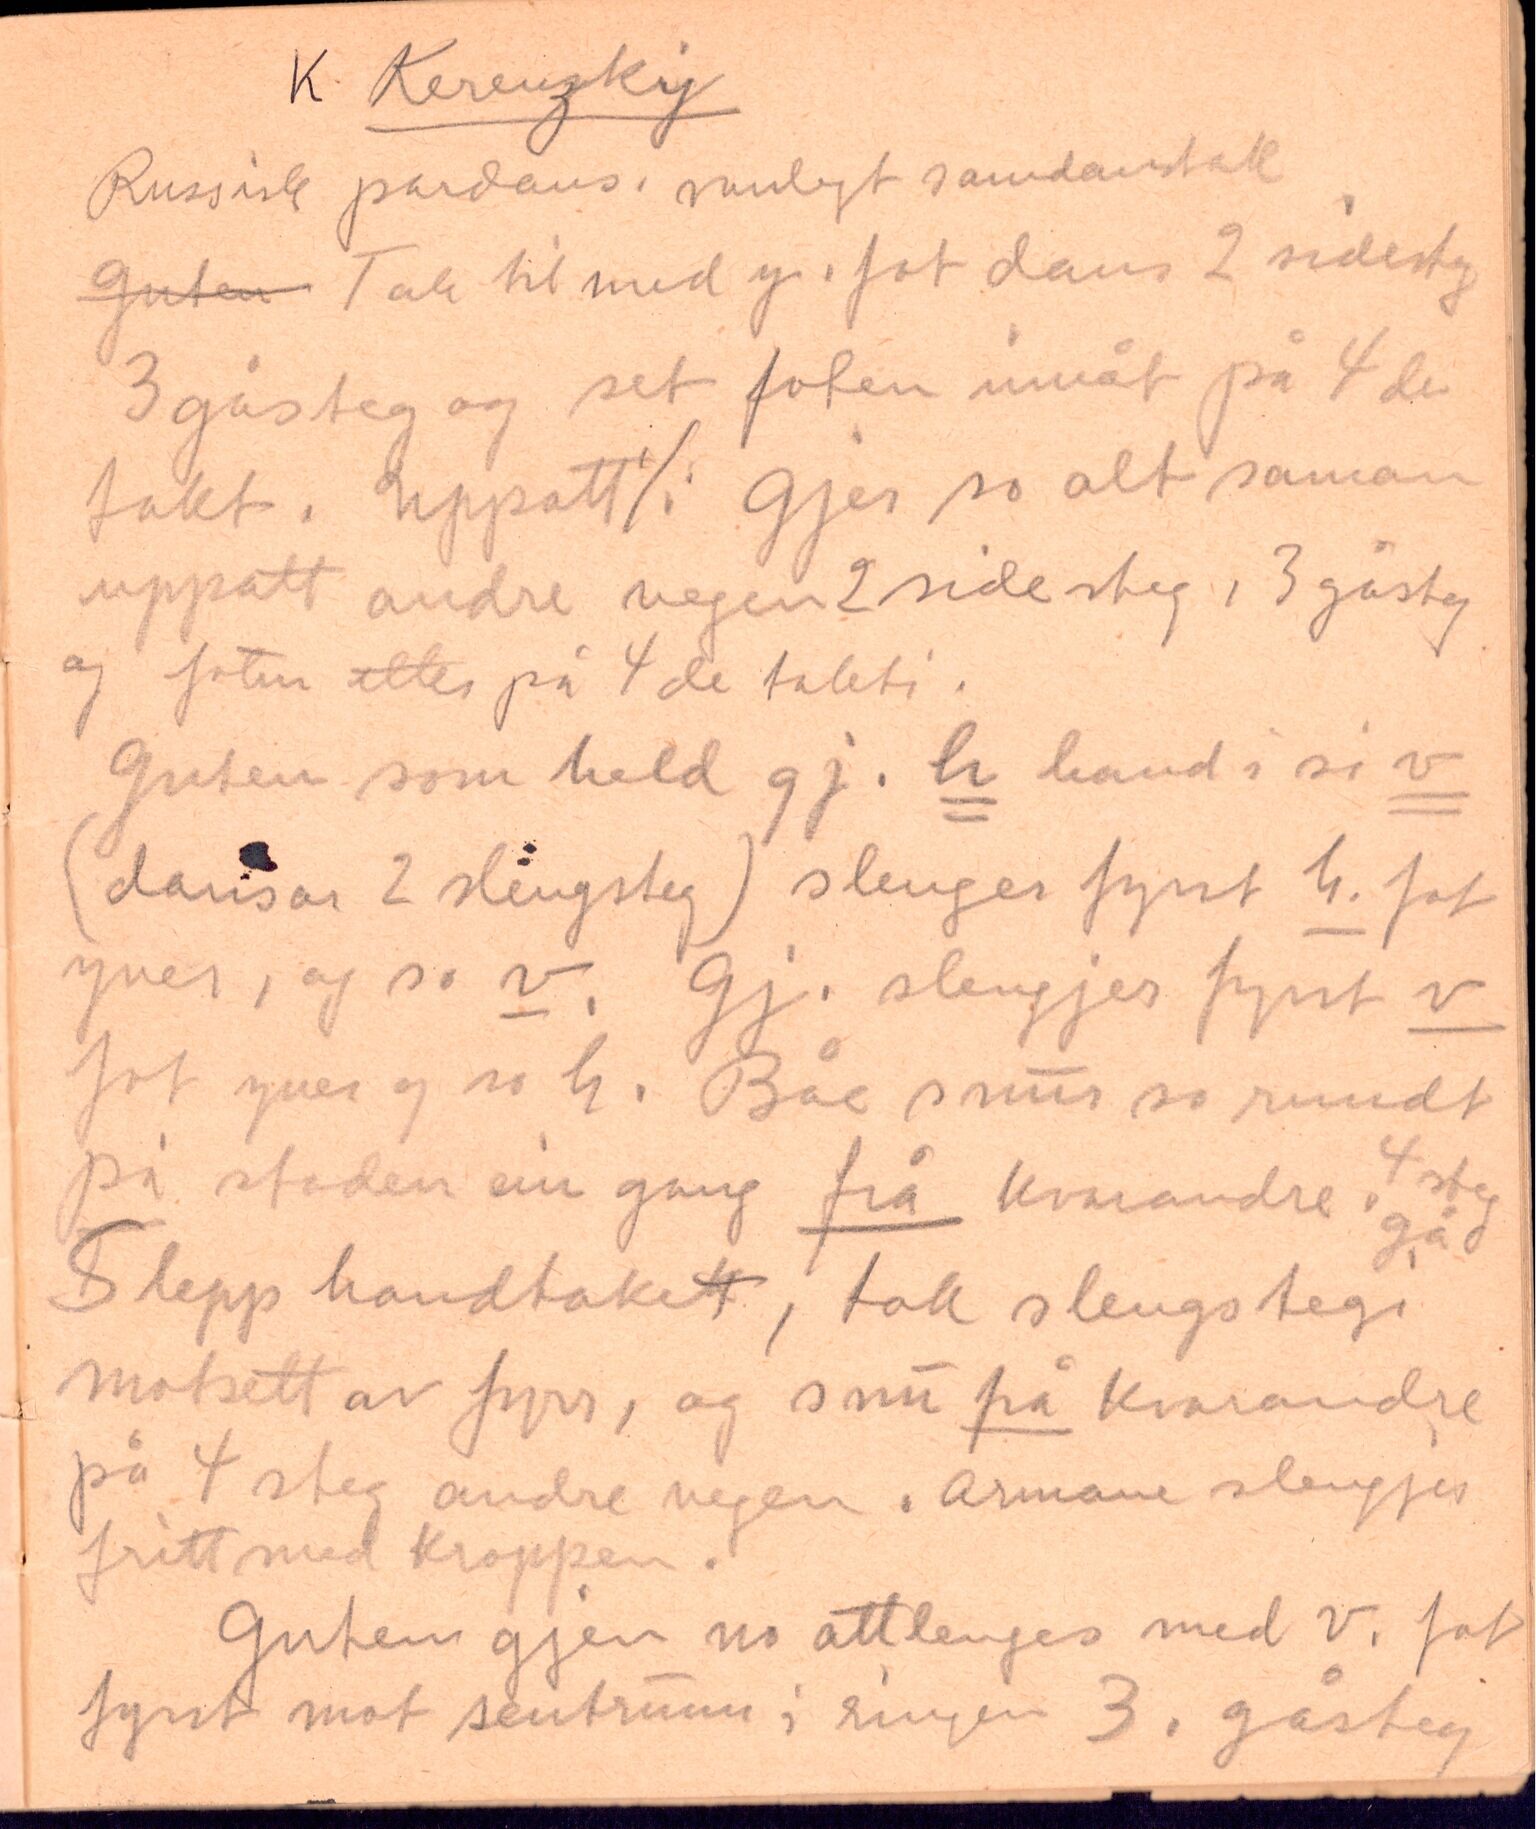 K. Kerenzkij
Russisk pardans. vanlegt samdanstak
Guten Tak til med y. fot dans 2 sidesteg
3 gåsteg og set foten innåt på 4 de
takt. Uppatt /: Gjer so alt saman
uppatt andre vegen 2 side steg, 3 gåsteg
og foten etter på 4 de takti.
Guten som held gj. h hand i si v
(dansar 2 slengsteg) slenger fyrst h. fot
yver, og so v. Gj. slengjer fyrst v
fot yver og so h. Båe snur so rundt
på staden ein gang frå kvarandre. 4 steg
gå
Slepp handtakett, tak slengstegi
motsett av fyrr, og snu på kvarandre
på 4 steg andre vegen. Armane slengjer
fritt med kroppen.
Guten gjen no attlenges med v. fot
fyrst mot sentrum i ringen 3. gåsteg